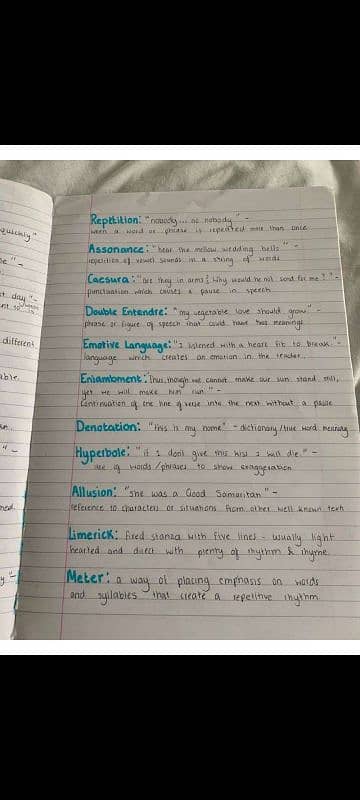 quickly"
Repitition: "nobody... no nobody" -
when a word or phrase is repeated more than once
Assonance: "hear the mellow wedding bells" -
repetition of vowel sounds in a string of words
Caesura: "are they in arms? Why would he not send for me?" -
punctuation which causes a pause in speech
day" -
Double Entendre: "my vegetable love should grow" -
phrase or figure of speech that could have two meanings
different
Emotive Language: "I listened with a heart fit to break" -
language which creates an emotion in the reader
Enjambment: "Thus, though we cannot make our sun stand still,
yet we will make him run" -
continuation of the line of verse into the next without a pause
Denotation: "this is my home" - dictionary/true word meaning
Hyperbole: "if I dont give this kiss I will die" -
use of words/phrases to show exaggeration
Allusion: "She was a Good Samaritan" -
reference to characters or situations from other well known text
Limerick: fixed stanza with five lines - usually light
hearted and direct with plenty of rhythm & rhyme.
Meter: a way of placing emphasis on words
and syllables that create a repetitive rhythm.